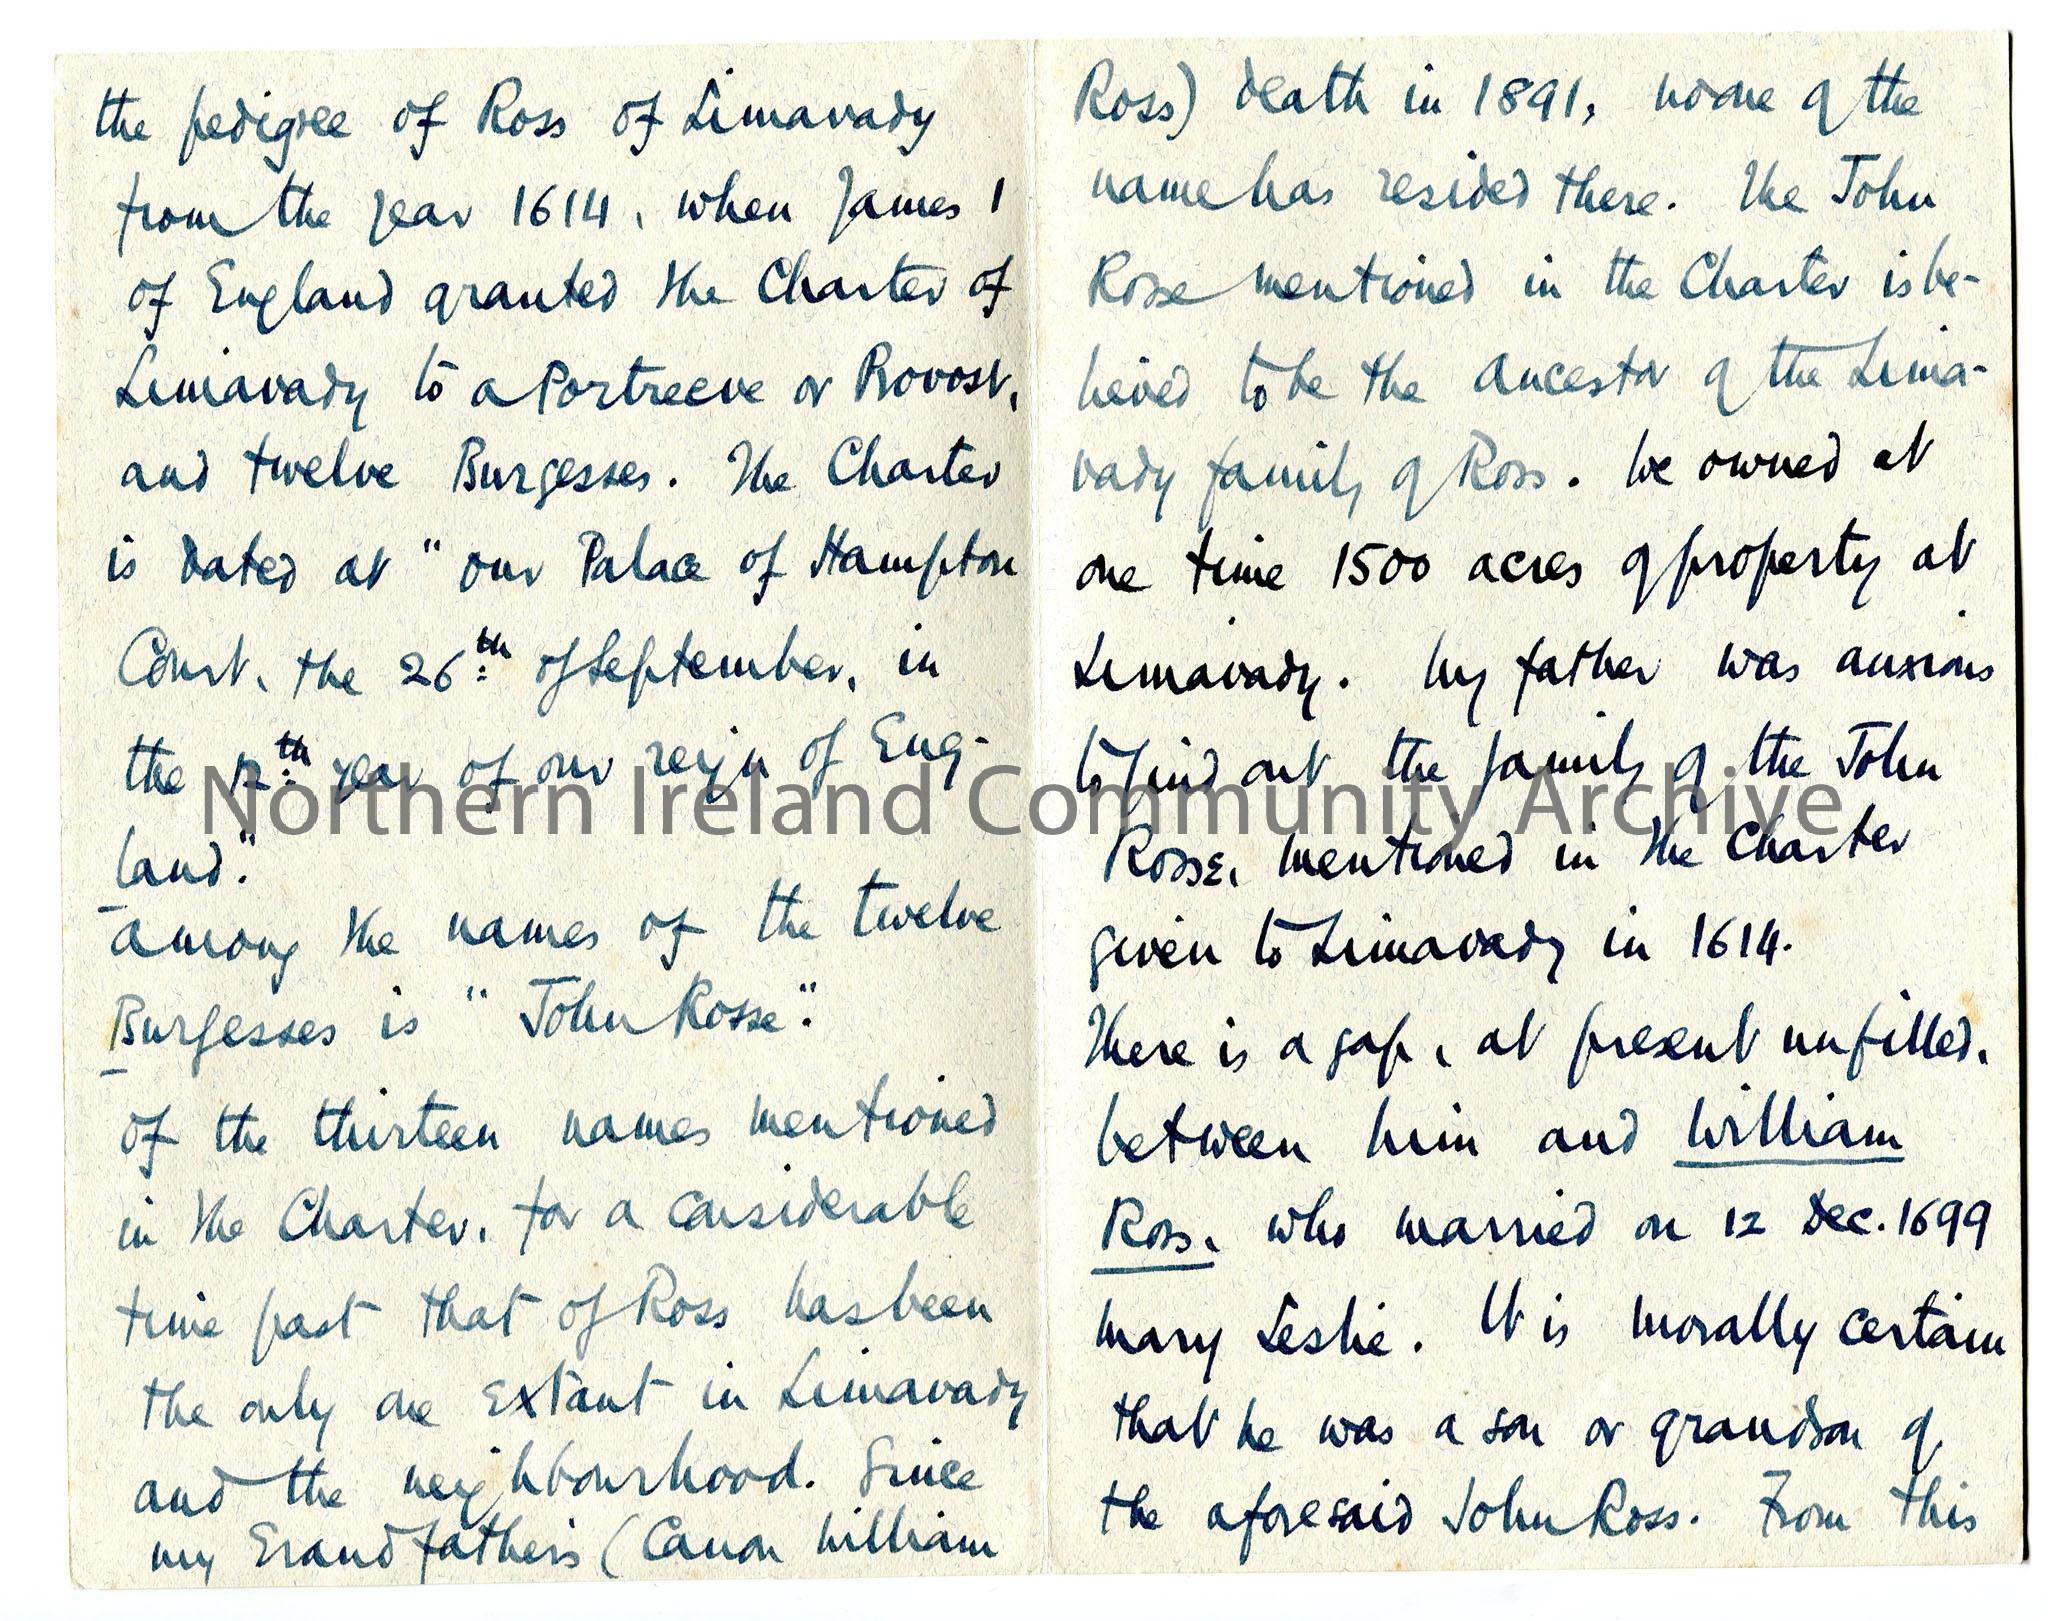 the pedigree of Ross of Limavady
from the year 1614, when James 1
of England granted the Charter of
Limavady to a Portreeve or Provost,
and twelve Burgesses. The Charter
is dated at "our Palace of Hampton
Court, the 26th of September, in
the 12th year of our reign of Eng-
land."
among the names of the twelve
Burgesses is "John Rosse".
of the thirteen names mentioned
in the Charter, for a considerable
time past that of Ross has been
the only one extant in Limavady
and the neighbourhood. Since
my Grandfather's (Canon William
Ross) death in 1891, no one of the
name has resided there. The John
Rosse mentioned in the Charter is be-
lieved to be the ancestor of the Lima-
vady family of Ross. We owned at
one time 1500 acres of property at
Limavady. My father was anxious
to find out the family of the John
Rosse, mentioned in the Charter
given to Limavady in 1614.
There is a gap, at present unfilled,
between him and William
Ross, who married on 12 Dec. 1699
Mary Leslie. It is morally certain
that he was a son or grandson of
the aforesaid John Ross. From this
Northern Ireland Community Archive